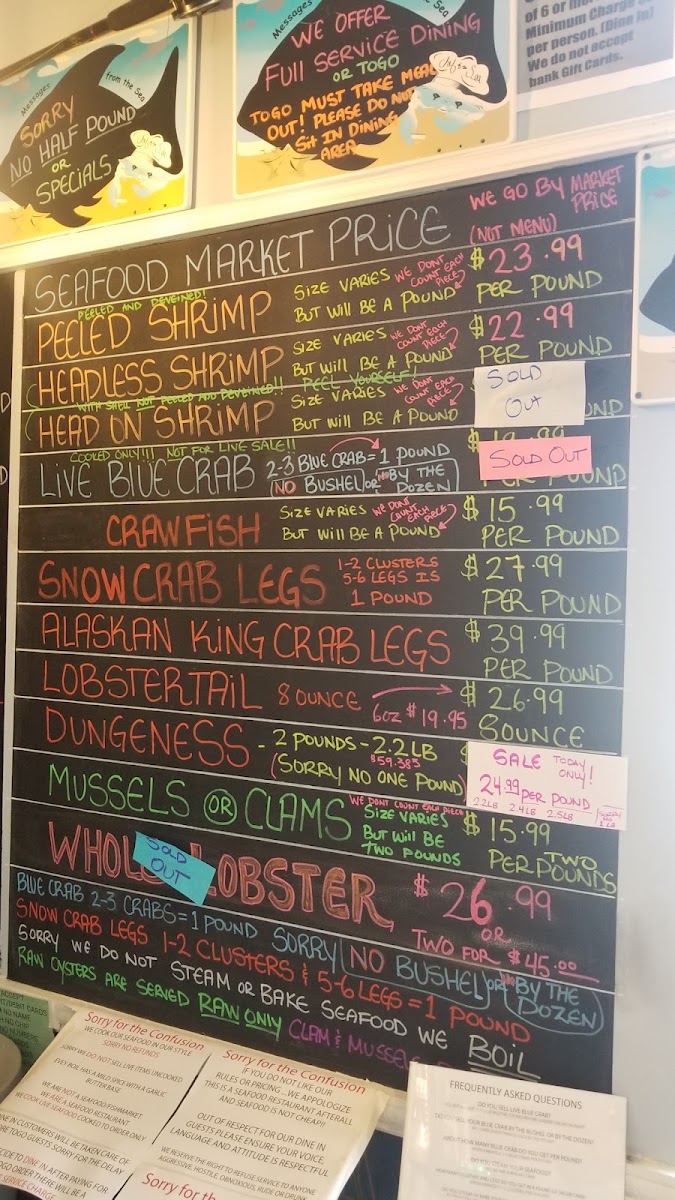 Messages from the Sea
SORRY
NO HALF POUND
OR
SPECIALS
Messages
the Sea
WE OFFER
FULL SERVICE DINING
OR TOGO
TOGO MUST TAKE MEAL
OUT! PLEASE DO NOT
Sit IN DINING
AREA
of 6 or more
Minimum Charge
per person. (Dine In)
We do not accept
bank Gift Cards.
SEAFOOD MARKET PRICE
WE GO BY MARKET PRICE
(NOT MENU)
PEELED AND DEVEINED!
PEELED SHRIMP
SIZE VARIES WE DONT COUNT EACH PIECE?
BUT Will BE A POUND
$23.99
PER POUND
HEADLESS SHRIMP
SIZE VARIES WE DONT COUNT EACH PIECE?
BUT Will BE A POUND
$22.99
PER POUND
WITH SHELL NOT PEELED AND DEVEINED!! PEEL YOURSELF!
HEAD ON SHRIMP
SIZE VARIES WE DONT COUNT EACH PIECE?
BUT Will BE A POUND
SOLD
OUT
UND
COOKED ONLY!!! NOT FOR LIVE SALE!!
LIVE BLUE CRAB
2-3 BLUE CRAB = 1 POUND
NO BUSHEL or NO BY THE DOZEN
SOLD OUT
POUND
CRAWFISH
SIZE VARIES WE DONT COUNT EACH PIECE?
BUT Will BE A POUND
$15.99
PER POUND
SNOW CRAB LEGS
1-2 CLUSTERS
5-6 LEGS IS
1 POUND
$27.99
PER POUND
ALASKAN KING CRAB LEGS
$39.99
PER POUND
LOBSTERTAIL 8 OUNCE
6oz $19.95
$26.99
8OUNCE
DUNGENESS - 2 POUNDS - 2.2LB
$59.385
(SORRY NO ONE POUND)
SALE TODAY ONLY!
24.99 PER POUND
2.2LB 2.4LB 2.5LB
MUSSELS OR CLAMS
WE DONT COUNT EACH PIECE
SIZE VARIES
BUT Will BE
TWO POUNDS
$15.99
PER TWO POUNDS
WHOLE LOBSTER
SOLD
OUT
$26.99
OR
TWO FOR $45.00
BLUE CRAB 2-3 CRABS = 1 POUND SORRY NO BUSHEL OR NO BY THE DOZEN
SNOW CRAB LEGS 1-2 CLUSTERS & 5-6 LEGS = 1 POUND
SORRY WE DO NOT STEAM OR BAKE SEAFOOD WE BOIL
RAW OYSTERS ARE SERVED RAW ONLY CLAM & MUSSELS
Sorry for the Confusion
WE COOK OUR SEAFOOD IN OUR STYLE
SORRY NO REFUNDS
SORRY WE DO NOT SELL LIVE ITEMS UNCOOKED
EVEY BOIL HAS A MILD SPICE WITH A GARLIC
BUTTER BASE
WE ARE NOT A SEAFOOD FISHMARKET
WE ARE A SEAFOOD RESTAURANT
WE COOK LIVE SEAFOOD COOKED TO ORDER ONLY
Sorry for the Confusion
IF YOU DO NOT LIKE OUR
RULES OR PRICING ...WE APPOLOGIZE
THIS IS A SEAFOOD RESTAURANT AFTERALL
AND SEAFOOD IS NOT CHEAP!!
OUT OF RESPECT FOR OUR DINE IN
GUESTS PLEASE ENSURE YOUR VOICE
LANGUAGE AND ATTITUDE IS RESPECTFUL
WE RESERVE THE RIGHT TO REFUSE SERVICE TO ANYONE
AGGRESSIVE, HOSTILE, OBNOXIOUS, RUDE OR DRUNK
Sorry for the
FREQUENTLY ASKED QUESTIONS
DO YOU SELL LIVE BLUE CRAB?
DO YOU SELL YOUR BLUE CRAB BY THE BUSHEL OR BY THE DOZEN?
ABOUT HOW MANY BLUE CRAB DO YOU GET PER POUND?
DO YOU STEAM YOUR SEAFOOD?
IN CUSTOMERS WILL BE TAKEN CARE OF
TOGO GUESTS SORRY FOR THE DELAY
DECIDE TO DINE IN AFTER PAYING FOR
TOGO ORDER THERE WILL BE A
SERVICE CHARGE